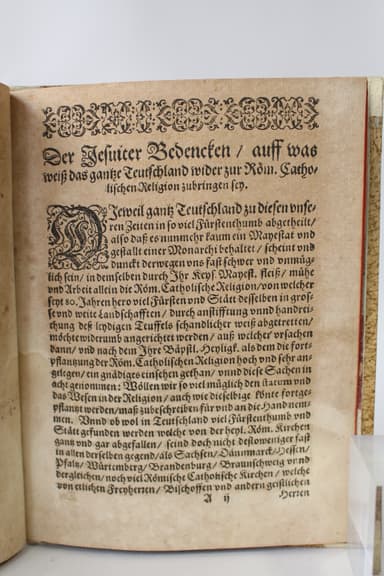 Der Jesuiter Bedencken / auff was
weiß das gantze Teutschland wider zur Röm. Catho-
lischen Religion zubringen sey.
DIeweil gantz Teutschland zu diesen unse-
ren Zeiten in so viel Fürstenthumb abgetheilt/
also daß es nunmehr kaum ein Mayestat und
gestalt einer Monarchi behaltet / scheint und
dunckt derwegen uns fast schwer und unmüg-
lich sein / in demselben durch Ihr Keys. Mayest. fleiß / mühe
und Arbeit allein die Röm. Catholische Religion / von welcher
seyt 80. Jahren hero viel Fürsten und Stät desselben in gros-
se und weite Landschafften / durch anstifftung unnd handrei-
chung deß leydigen Teuffels schandlicher weiß abgetretten/
möchte widerumb angerichtet werden / auß welcher ursachen
dann / und nach dem Ihre Bäpstl. Heyligk. als dem die fort-
pflantzung der Röm. Catholischen Religion hoch und sehr an-
gelegen / ein gnädiges einsehen gethan / unnd diese Sachen in
acht genommen: Wöllen wir so viel müglich den statum und
das Wesen in der Religion / auch wie dieselbige könte fortge-
pflantzt werden / maß zubeschreiben für und an die Hand nem-
men. Unnd ob wol in Teutschland viel Fürstenthumb und
Stätt gefunden werden welche von der heyl. Röm. Kirchen
gantz und gar abgefallen / seind doch nicht destoweniger fast
in allen derselben gegend / als Sachsen / Dännmarck / Hessen/
Pfaltz / Würtemberg / Brandenburg / Braunschweig unnd
dergleichen / noch viel Römische Catholische Kirchen / welche
von etlichen Freyherten / Bischoffen und andern geistlichen
A ij Herren